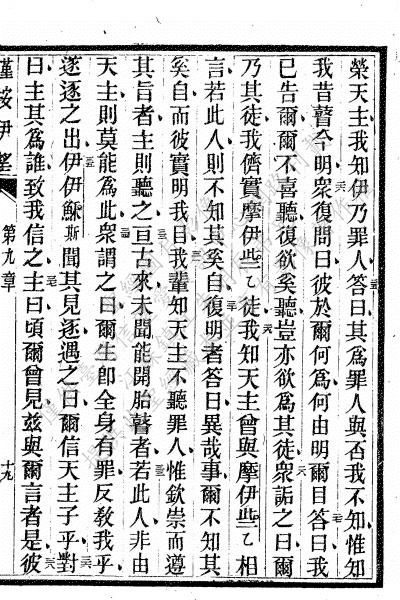 榮天主我知伊乃罪人答曰其爲罪人與否我不知惟知
我昔瞽今明衆復問曰彼於爾何爲何由明爾目答曰我
已告爾爾不喜聽復欲奚聽豈亦欲爲其徒衆詬之曰爾
乃其徒我儕實摩伊些乙徒我知天主曾與摩伊些乙相
言若此人則不知其奚自復明者答曰異哉事爾不知其
奚自而彼實明我目我輩知天主不聽罪人惟欽崇而遵
其旨者主則聽之亘古來未聞能開胎瞽者若此人非由
天主則莫能爲此衆謂之曰爾生卽全身有罪反敎我乎
遂逐之出伊伊穌斯聞其見逐遇之曰爾信天主子乎對
曰主其爲誰致我信之主曰頃爾曾見茲與爾言者是彼
第九章
十九